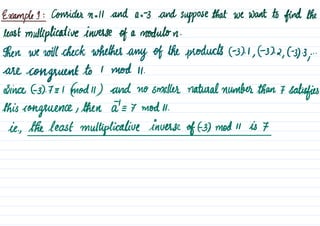 Example 1: Consider n=11 and a=-3 and suppose that we want to find the
least multiplicative inverse of a modulo n.
Then we will check whether any of the products (-3).1, (-3).2, (-3).3, ...
are congruent to 1 mod 11.
Since (-3).7≡1 (mod 11) and no smaller natural number than 7 satisfies
this congruence, then a⁻¹ ≡ 7 mod 11.
i.e., the least multiplicative inverse of (-3) mod 11 is 7